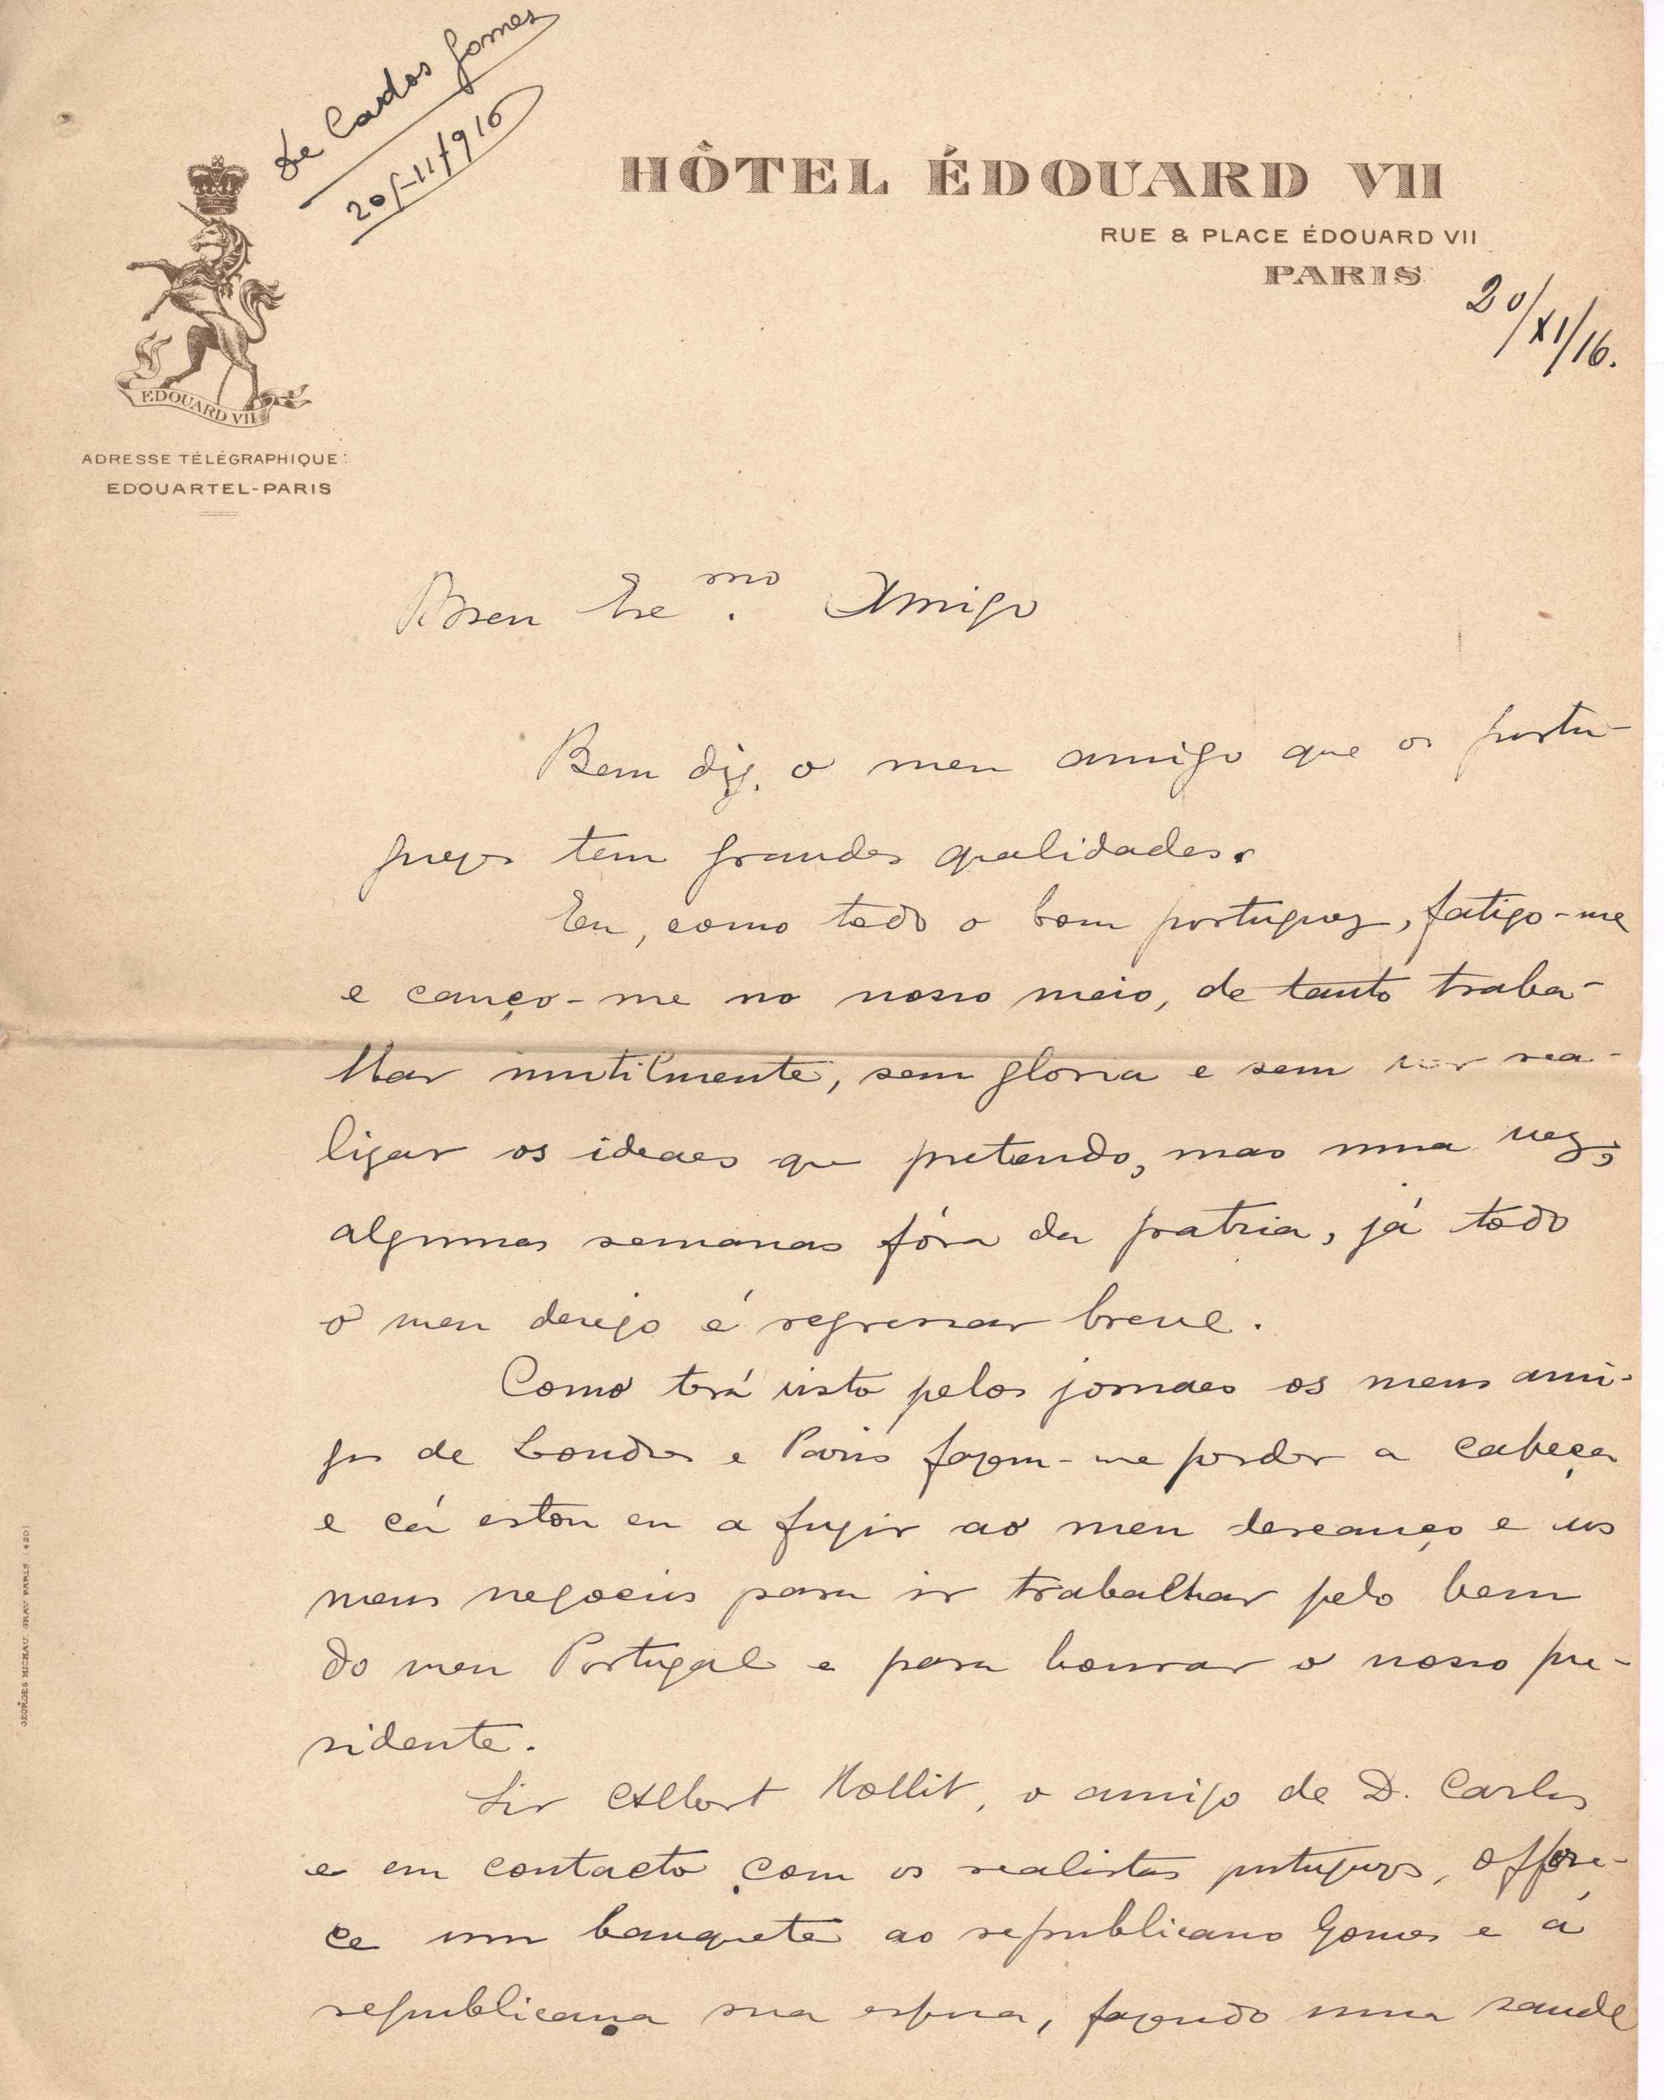 De Carlos Gomes
20-11-916
HÔTEL ÉDOUARD VII
RUE & PLACE ÉDOUARD VII
PARIS
20/XI/16.
EDOUARD VII
ADRESSE TÉLÉGRAPHIQUE:
EDOUARTEL-PARIS
Meu Exe.mo Amigo
Bem diz, o meu amigo que os portu-
guezes tem grandes qualidades.
Eu, como todo o bom portuguez, fatigo-me
e canço-me no nosso meio, de tanto traba-
lhar inutilmente, sem gloria e sem ver rea-
lizar os ideaes que pretendo, mas uma vez,
algumas semanas fóra da patria, já todo
o meu desejo é regressar breve.
Como terá visto pelos jornaes os meus ami-
gos de Londres e Paris fazem-me perder a cabeça
e cá estou eu a fugir ao meu descanço e aos
meus negocios para ir trabalhar pelo bem
do meu Portugal e para honrar o nosso pre-
sidente.
Sir Albert Rollit, o amigo de D. Carlos
e em contacto com os realistas portuguezes, offere-
ce um banquete ao republicano Gomes e á
republicana sua esposa, fazendo uma saude
GEORGES MICHAU GRAV PARIS